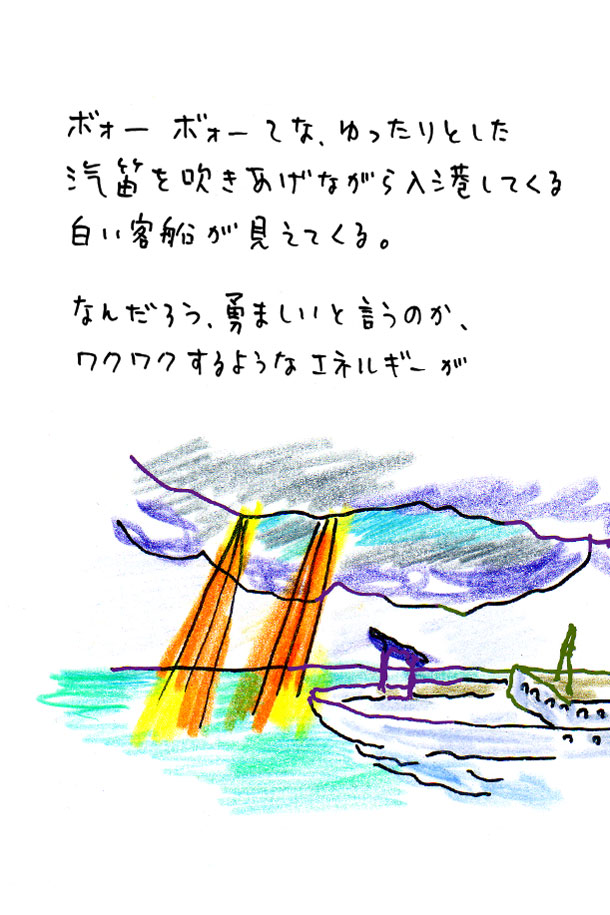 ボォー ボォーてな、ゆったりとした
汽笛を吹きあげながら入港してくる
白い客船が見えてくる。
なんだろう、勇ましいと言うのか、
ワクワクするようなエネルギーが